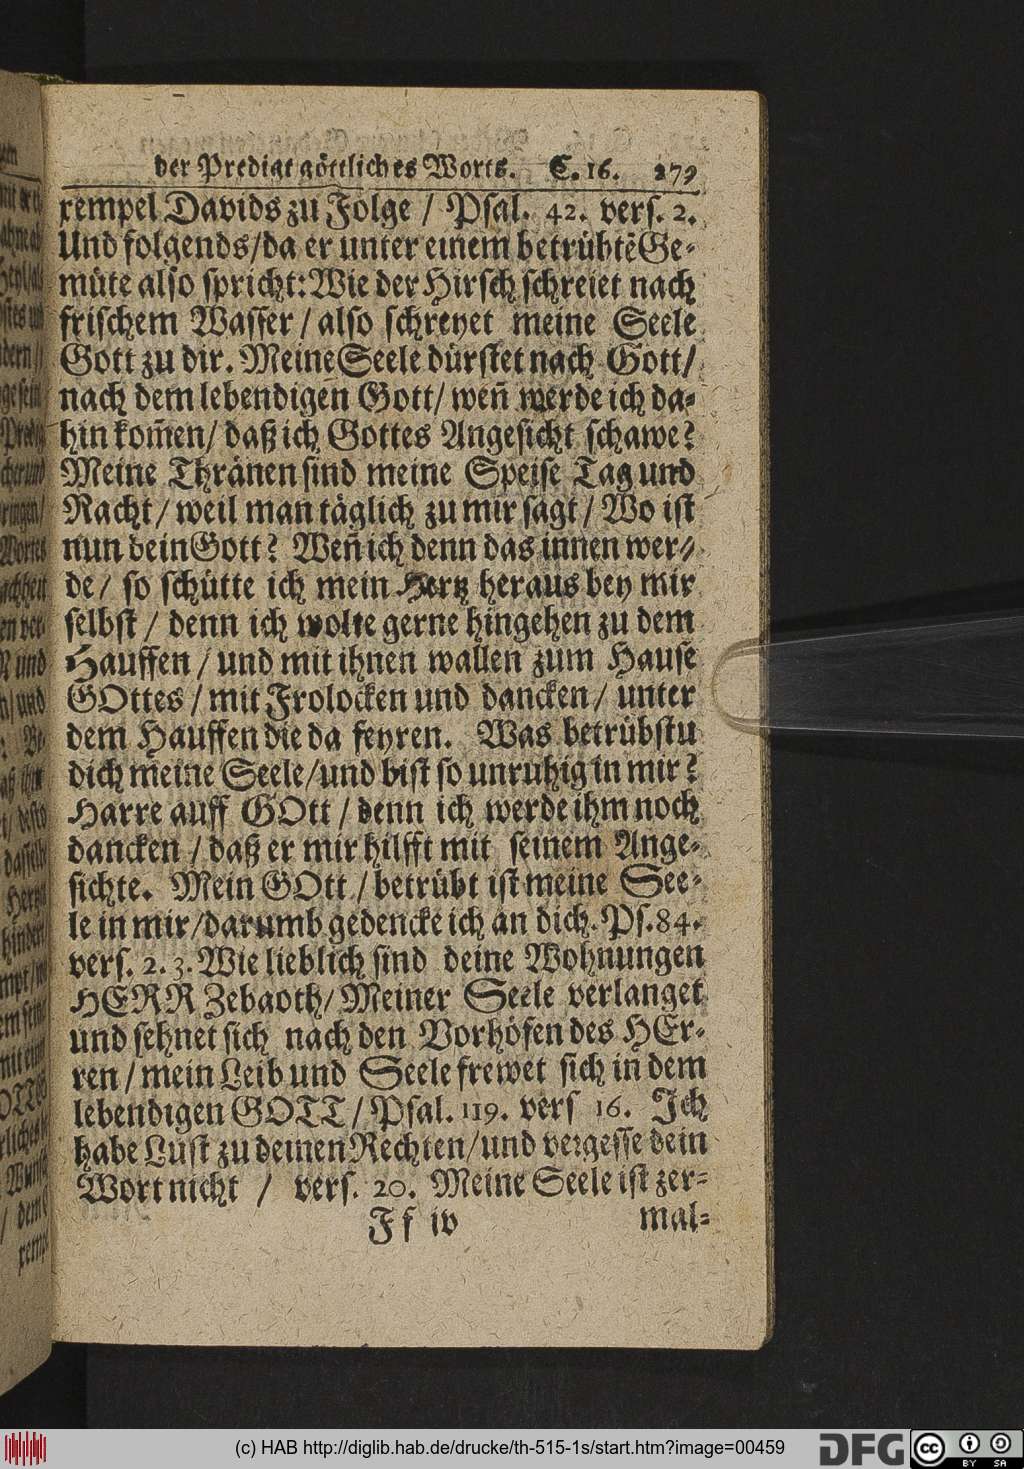 der Predigt göttliches Worts. C. 16. 279
xempel Davids zu Folge / Psal. 42. vers. 2.
Und folgends/da er unter einem betrübtẽ Ge-
müte also spricht: Wie der Hirsch schreiet nach
frischem Wasser / also schreyet meine Seele
Gott zu dir. Meine Seele dürstet nach Gott/
nach dem lebendigen Gott/ weñ werde ich da-
hin kom̃en/ daß ich Gottes Angesicht schawe?
Meine Thränen sind meine Speise Tag und
Nacht/ weil man täglich zu mir sagt/ Wo ist
nun dein Gott? Weñ ich denn das innen wer-
de/ so schütte ich mein Hertz heraus bey mir
selbst / denn ich wolte gerne hingehen zu dem
Hauffen / und mit ihnen wallen zum Hause
GOttes / mit Frolocken und dancken/ unter
dem Hauffen die da feyren. Was betrübstu
dich meine Seele/und bist so unruhig in mir?
Harre auff GOtt / denn ich werde ihm noch
dancken / daß er mir hilfft mit seinem Ange-
sichte. Mein GOtt / betrübt ist meine See-
le in mir/darumb gedencke ich an dich. Ps. 84.
vers. 2. 3. Wie lieblich sind deine Wohnungen
HERR Zebaoth/ Meiner Seele verlanget
und sehnet sich nach den Vorhöfen des HEr-
ren / mein Leib und Seele frewet sich in dem
lebendigen GOTT / Psal. 119. vers 16. Jch
habe Lust zu deinen Rechten/und vergesse dein
Wort nicht / vers. 20. Meine Seele ist zer-
Ff iv mal-
(c) HAB http://diglib.hab.de/drucke/th-515-1s/start.htm?image=00459
DFG
cc BY SA